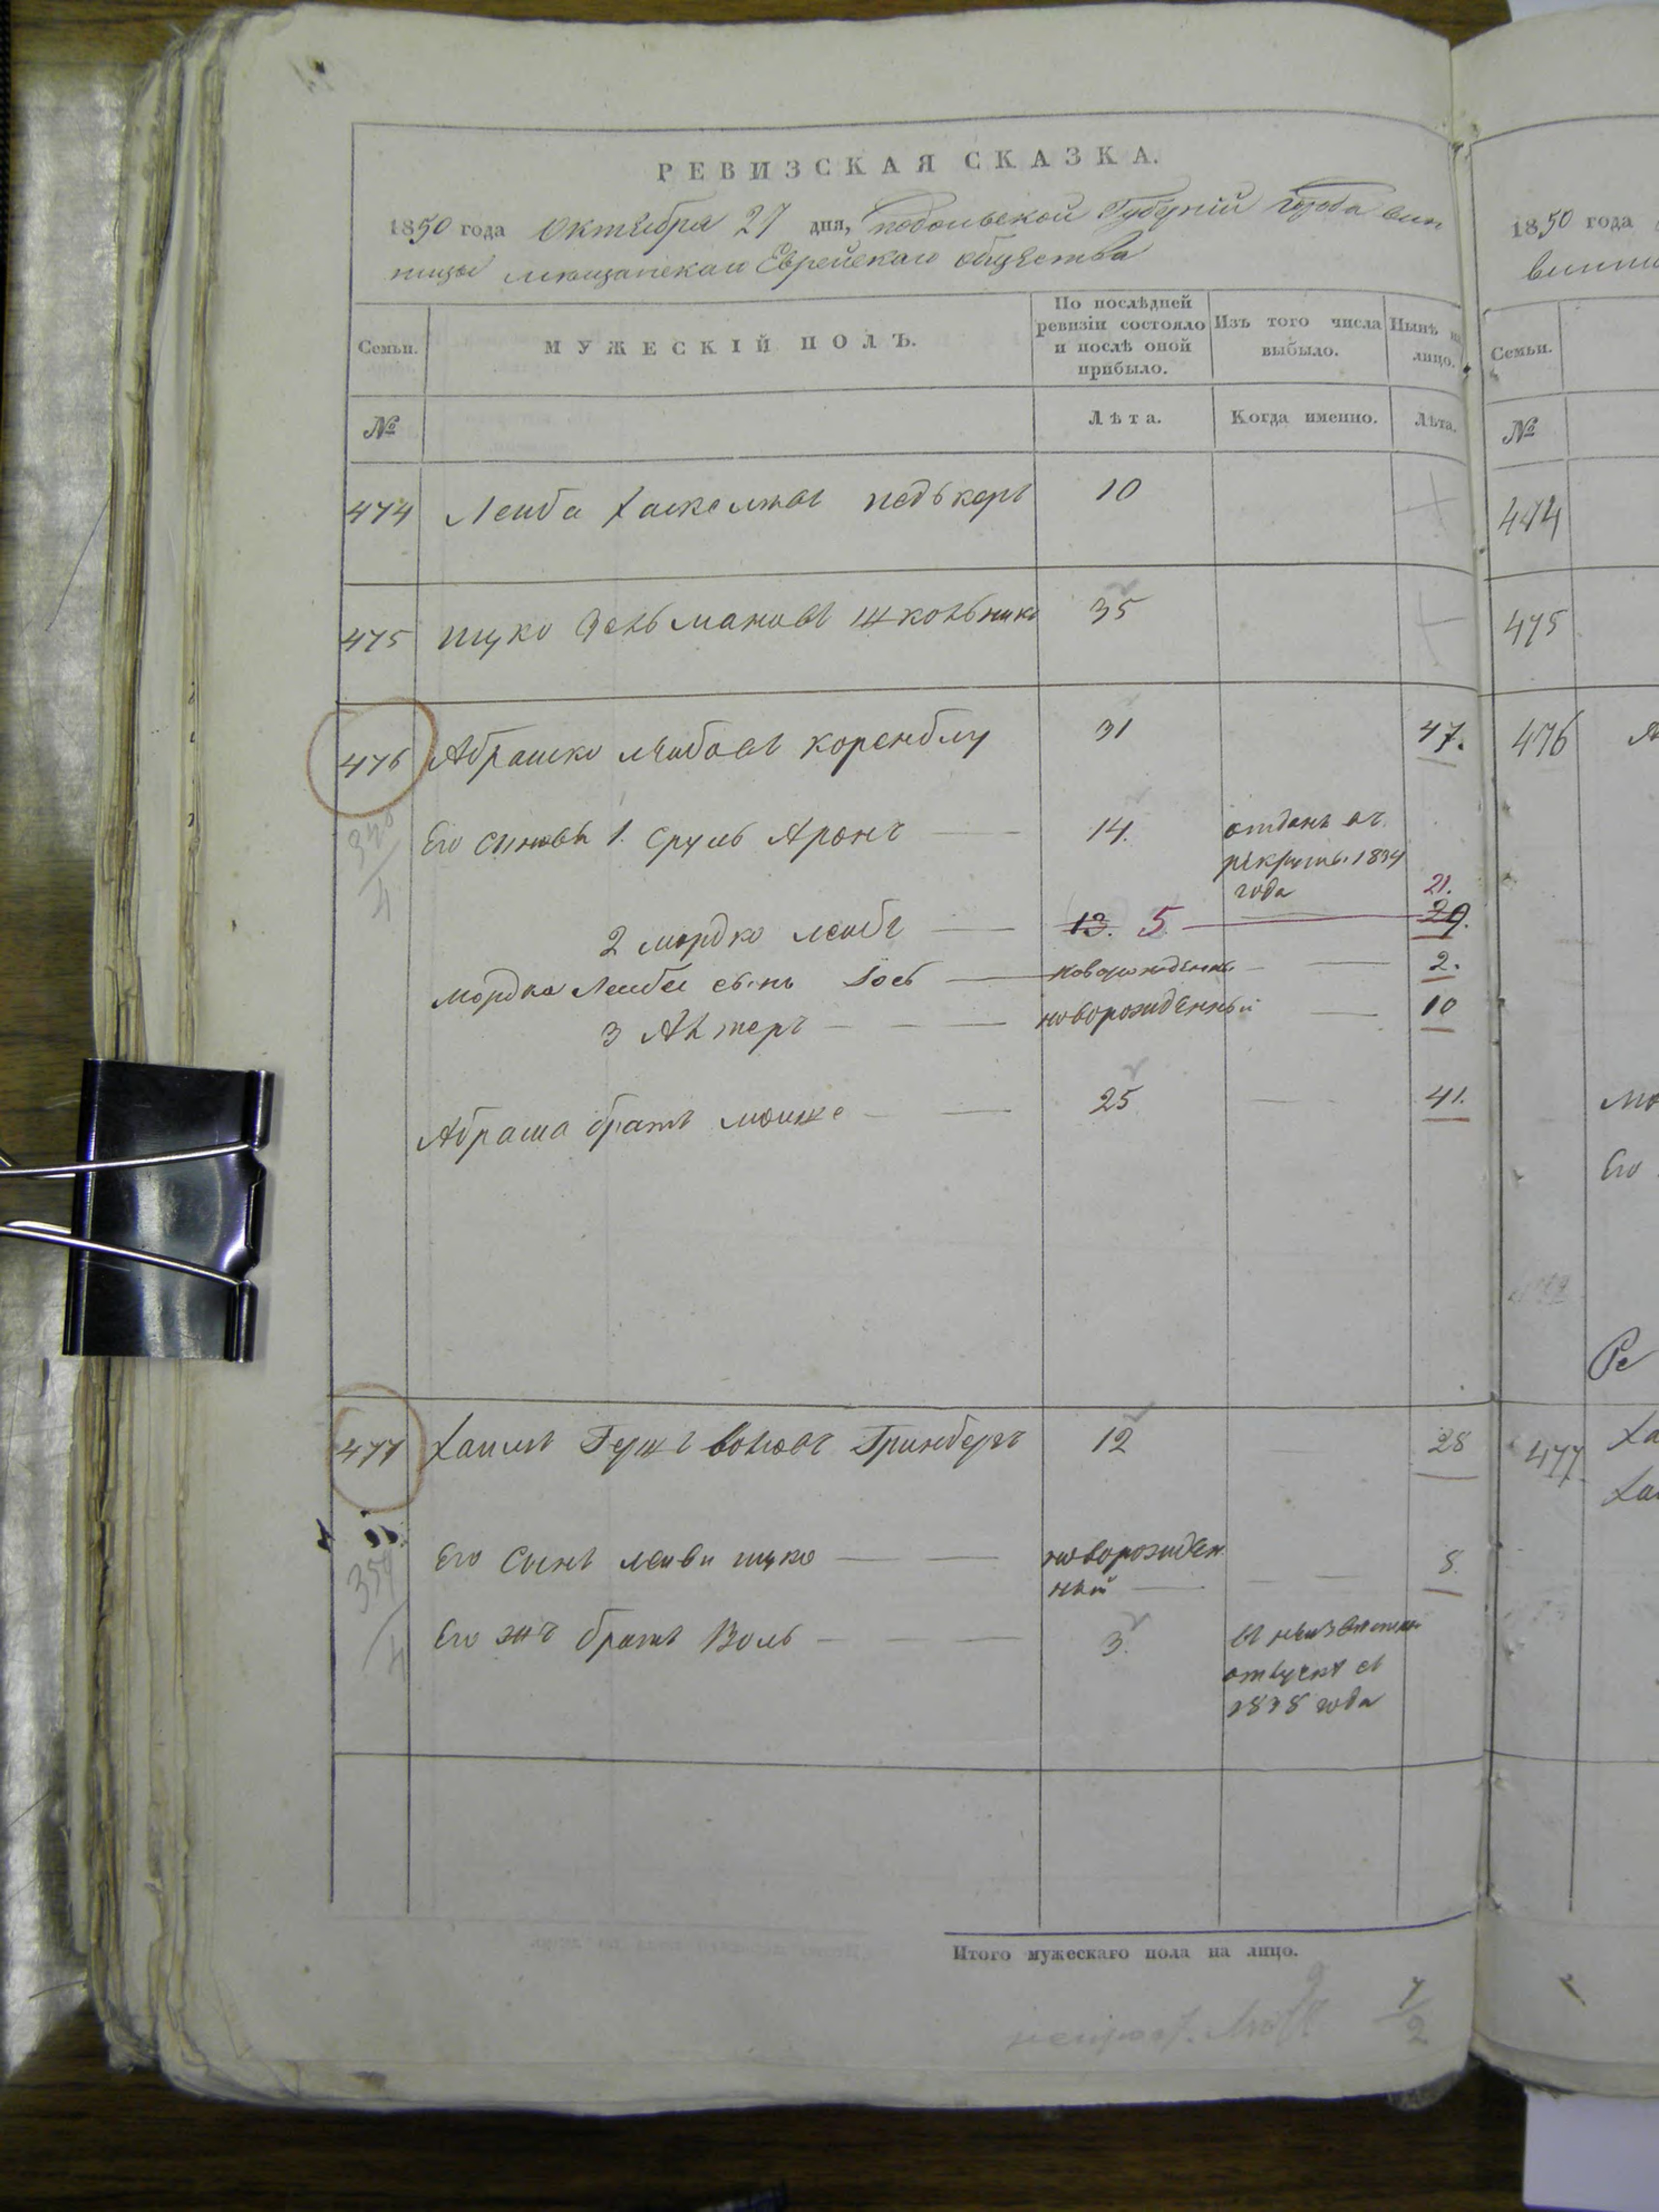 РЕВИЗСКАЯ СКАЗКА.
1850 года Октября 27 дня, подольской Губерніи Города вин
ницы мещанскаго Еврейскаго общества
Семьи. МУЖЕСКІЙ ПОЛЪ. По послѣдней ревизіи состояло и послѣ оной прибыло. Изъ того числа выбыло. Нынѣ на лицо.
№ Лѣта. Когда именно. Лѣта.
474 Лейба Хаскелювъ 10
475 ицко Зельмановъ школьникъ 35
476 Абрашко Лейбовъ коренблу 31 47.
Его сыновя 1. Сруль Аронъ 14. отданъ въ
рекруты. 1834
года
21.
2 мордко лейбъ 13. 5 29.
мордка Лейбы сынъ Іось новорожденны 2.
3 Антеръ новорожденный 10
Абраша братъ мошке 25 41.
477 Хаимъ Гершъ волковъ Гринбергъ 12 28
Его Сынъ Лейви ицко новорожден 8.
ный
Его жъ братъ Воль 3. въ неизвестной
отлучке съ
1838 года
Итого мужескаго пола на лицо.
7
2
1850 года
винни
Семьи.
№
474
475
476 А
Мо
Его
Ре
477 Ха
Ха